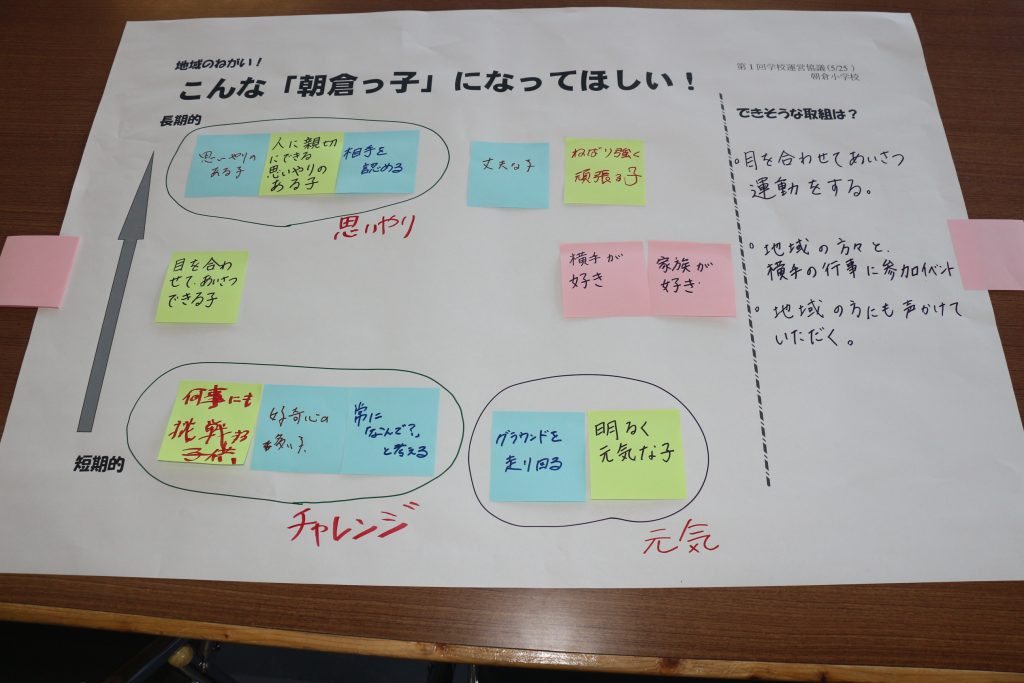 地域のねがい！
こんな「朝倉っ子」になってほしい！
第1回学校運営協議(5/25)
朝倉小学校
長期的
思いやりの
ある子
人に親切
にできる
思いやりの
ある子
相手を
認める
思いやり
丈夫な子
ねばり強く
頑張る子
目を合わ
せて、あいさつ
できる子
横手が
好き
家族が
好き
何事にも
挑戦する
子供
好奇心の
強い子
常に
「なんで？」
と考える
チャレンジ
グラウンドを
走り回る
明るく
元気な子
元気
短期的
できそうな取組は？
○目を合わせてあいさつ
運動をする。
○地域の方々と、
横手の行事に参加イベント
○地域の方にも声かけて
いただく。